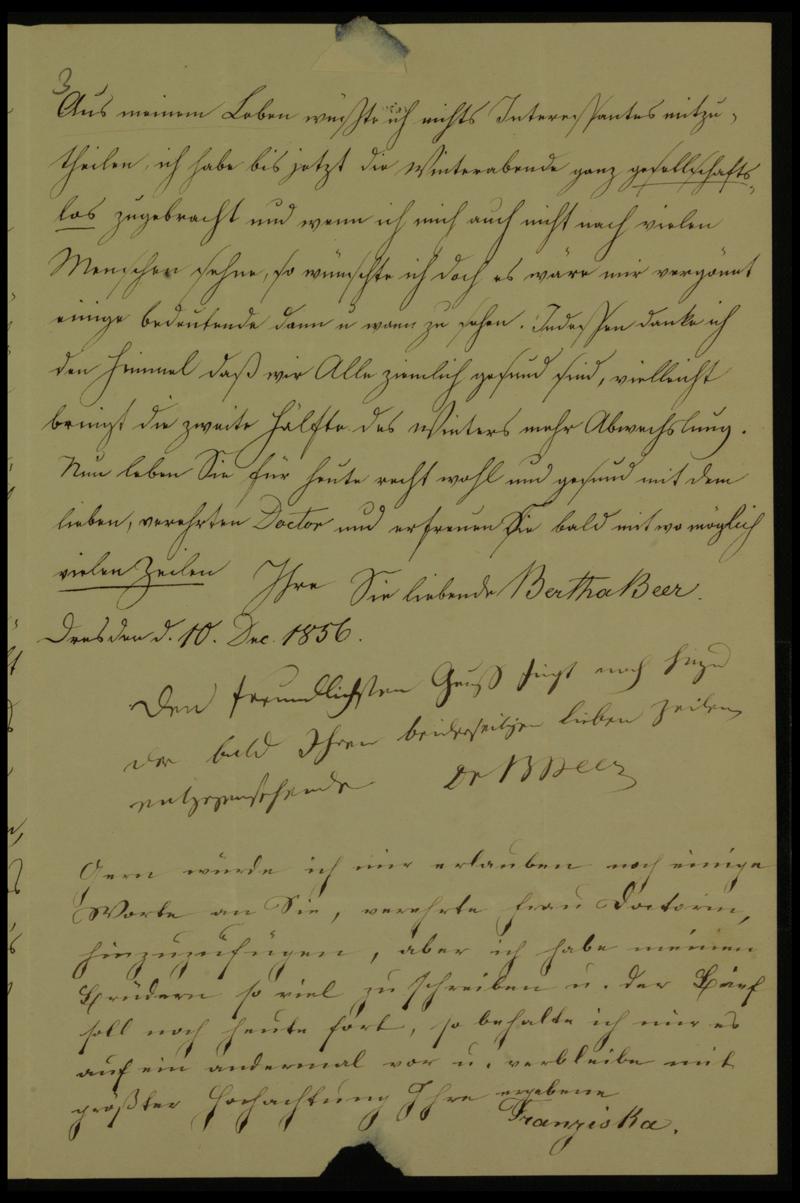 3
Aus meinem Leben wüßte ich nichts Interessantes mitzu-
theilen, ich habe bis jetzt die Winterabende ganz gesellschafts-
los zugebracht und wenn ich mich auch nicht nach vielen
Menschen sehne, so wünschte ich doch es wäre mir vergönnt
einige bedeutende dann u wann zu sehen. Indessen danke ich
den Himmel daß wir Alle ziemlich gesund sind, vielleicht
bringt die zweite Hälfte des Winters mehr Abwechslung.
Nun leben Sie für heute recht wohl und gesund mit dem
lieben, verehrten Doctor und erfreuen Sie bald mit wo möglich
vielen Zeilen Ihre Sie liebende Bertha Beer.
Dresden d. 10. Dec. 1856.
Den freundlichsten Gruß fügt noch hinzu
der bald Ihren beiderseitigen lieben Zeilen
entgegensehende Dr B Beer
Gern würde ich mir erlauben noch einige
Worte an Sie, verehrte Frau Doctorin,
hinzuzufügen, aber ich habe meinen
Brüdern so viel zu schreiben u. der Brief
soll noch heute fort, so behalte ich mir es
auf ein andermal vor u. verbleibe mit
größter Hochachtung Ihre ergebene
Franziska.